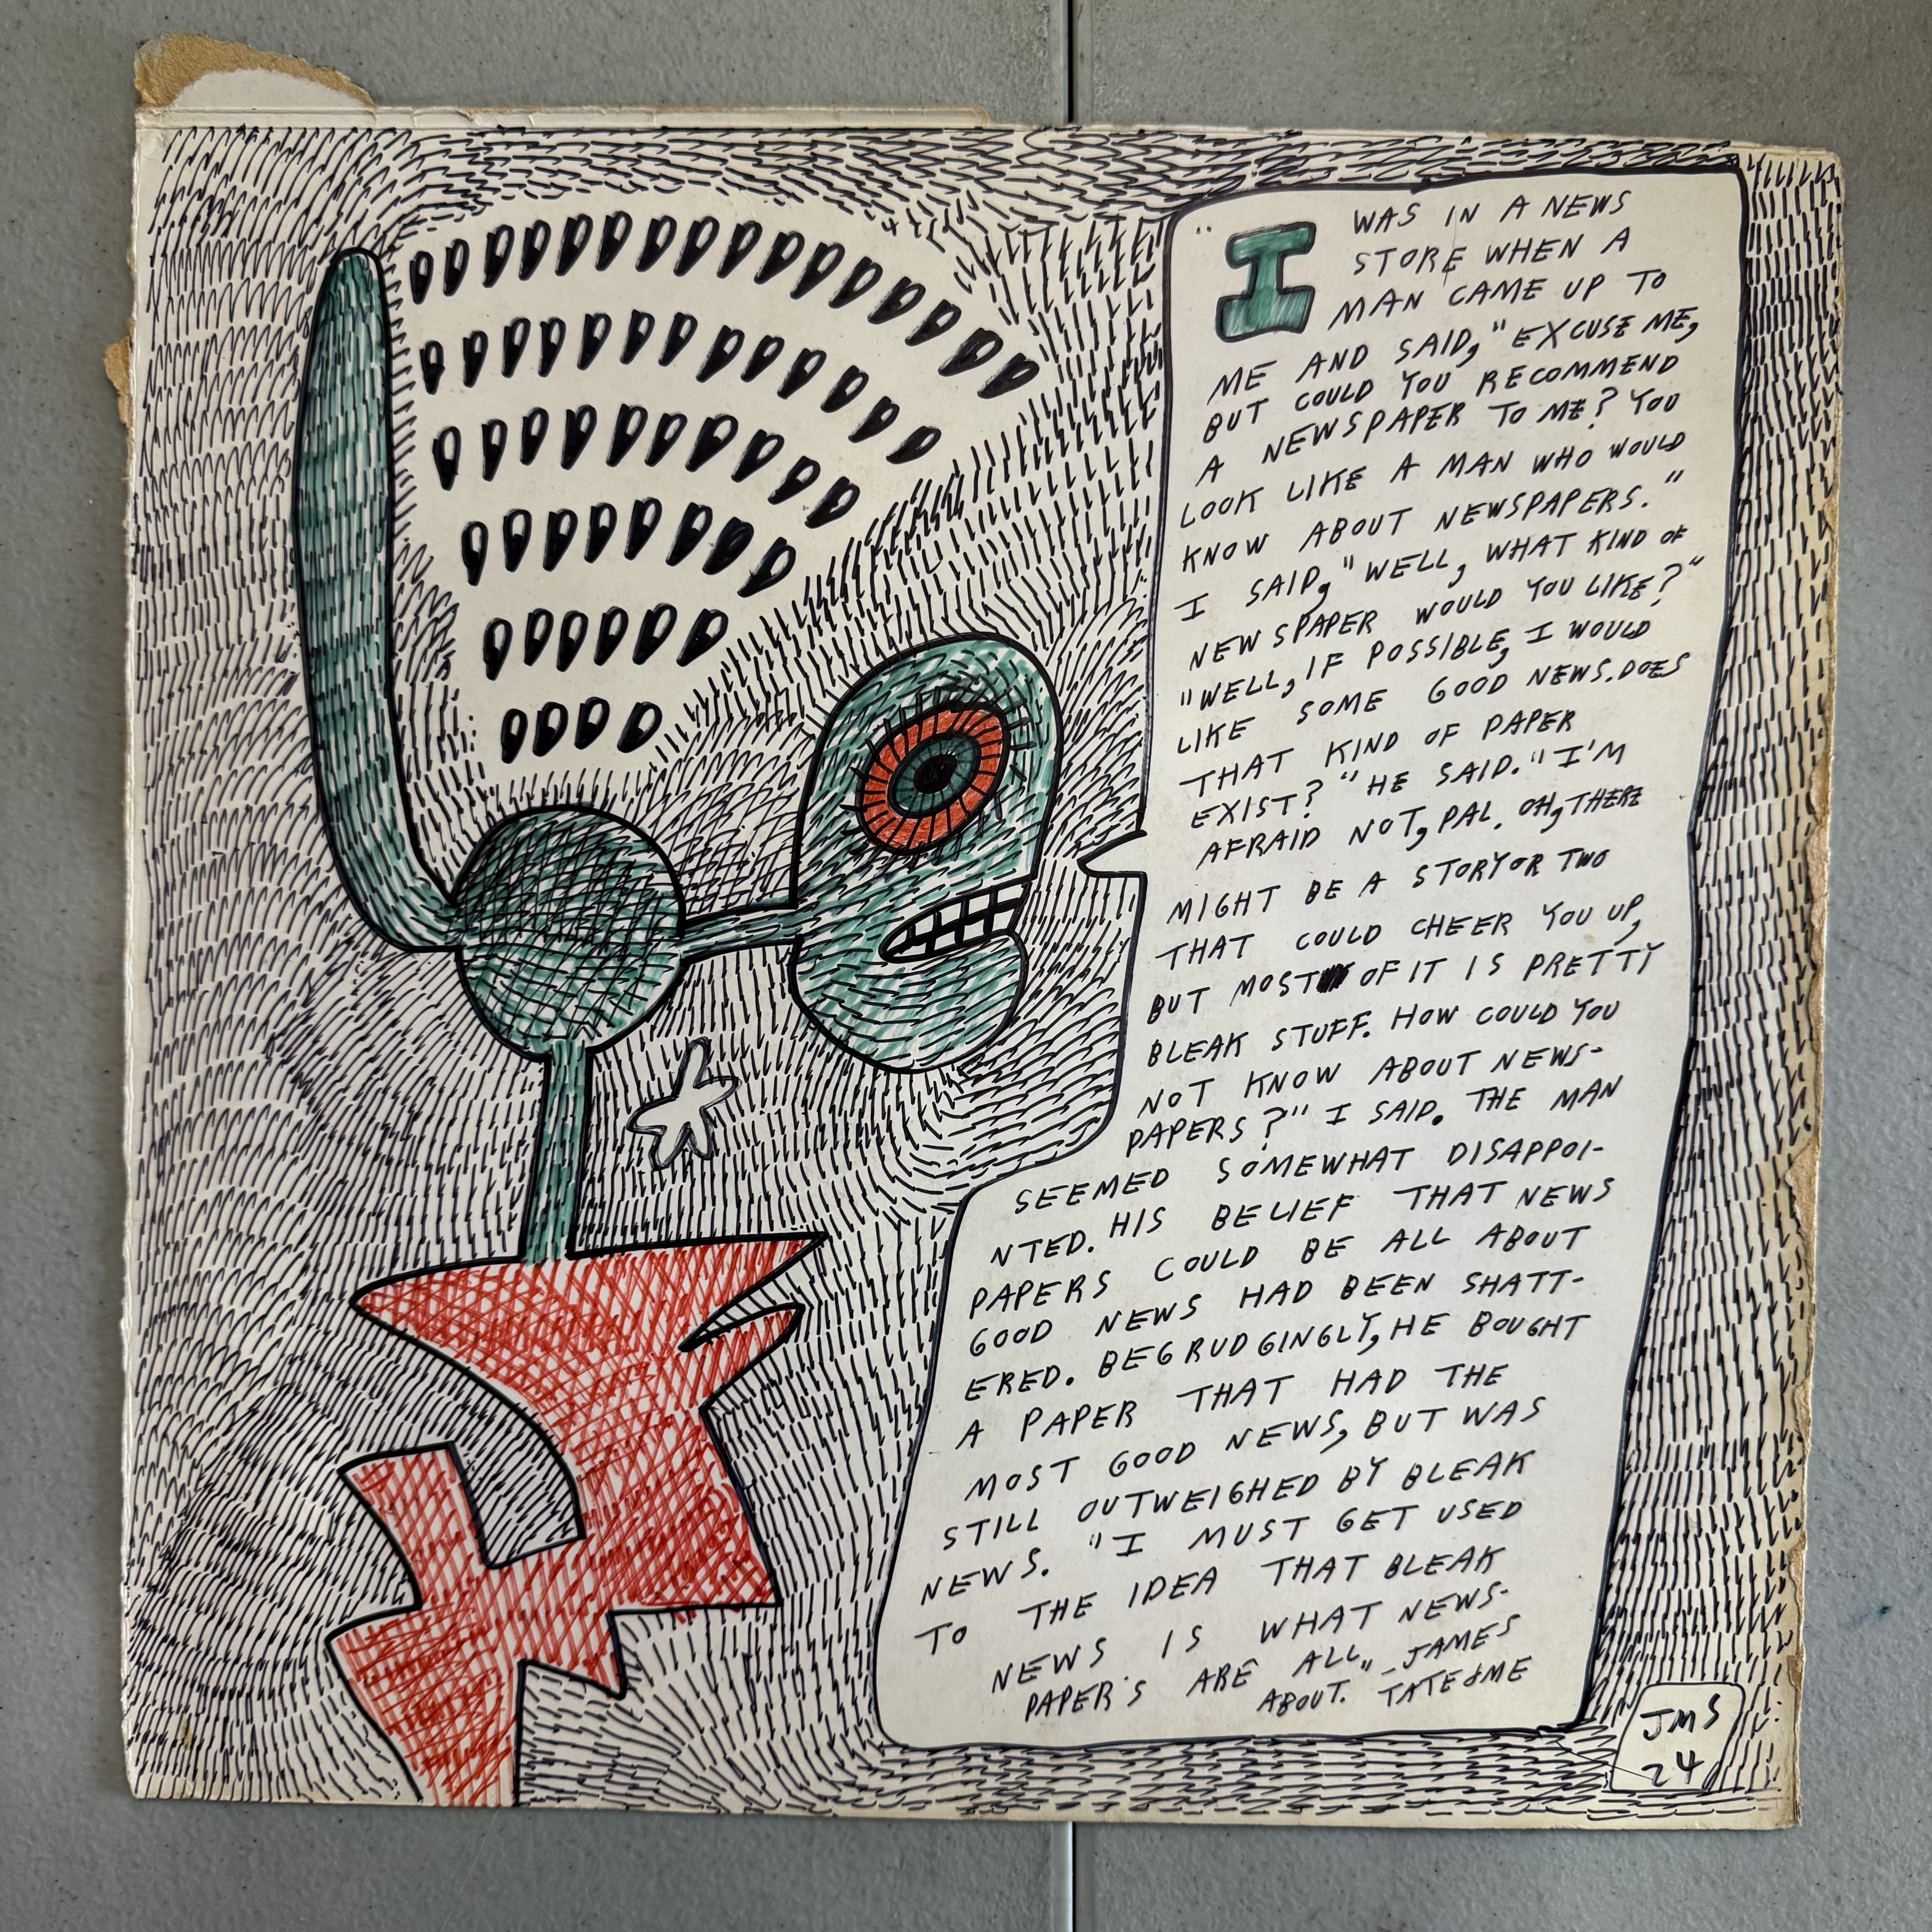 "I WAS IN A NEWS
STORE WHEN A
MAN CAME UP TO
ME AND SAID, "EXCUSE ME,
BUT COULD YOU RECOMMEND
A NEWSPAPER TO ME? YOU
LOOK LIKE A MAN WHO WOULD
KNOW ABOUT NEWSPAPERS."
I SAID, "WELL, WHAT KIND OF
NEWSPAPER WOULD YOU LIKE?"
"WELL, IF POSSIBLE, I WOULD
LIKE SOME GOOD NEWS. DOES
THAT KIND OF PAPER
EXIST?" HE SAID. "I'M
AFRAID NOT, PAL. OH, THERE
MIGHT BE A STORY OR TWO
THAT COULD CHEER YOU UP,
BUT MOST OF IT IS PRETTY
BLEAK STUFF. HOW COULD YOU
NOT KNOW ABOUT NEWS-
PAPERS?" I SAID. THE MAN
SEEMED SOMEWHAT DISAPPOI-
NTED. HIS BELIEF THAT NEWS
PAPERS COULD BE ALL ABOUT
GOOD NEWS HAD BEEN SHATT-
ERED. BEGRUDGINGLY, HE BOUGHT
A PAPER THAT HAD THE
MOST GOOD NEWS, BUT WAS
STILL OUTWEIGHED BY BLEAK
NEWS. "I MUST GET USED
TO THE IDEA THAT BLEAK
NEWS IS WHAT NEWS-
PAPER'S ARE ALL
ABOUT." - JAMES
TATE & ME
JMS
24